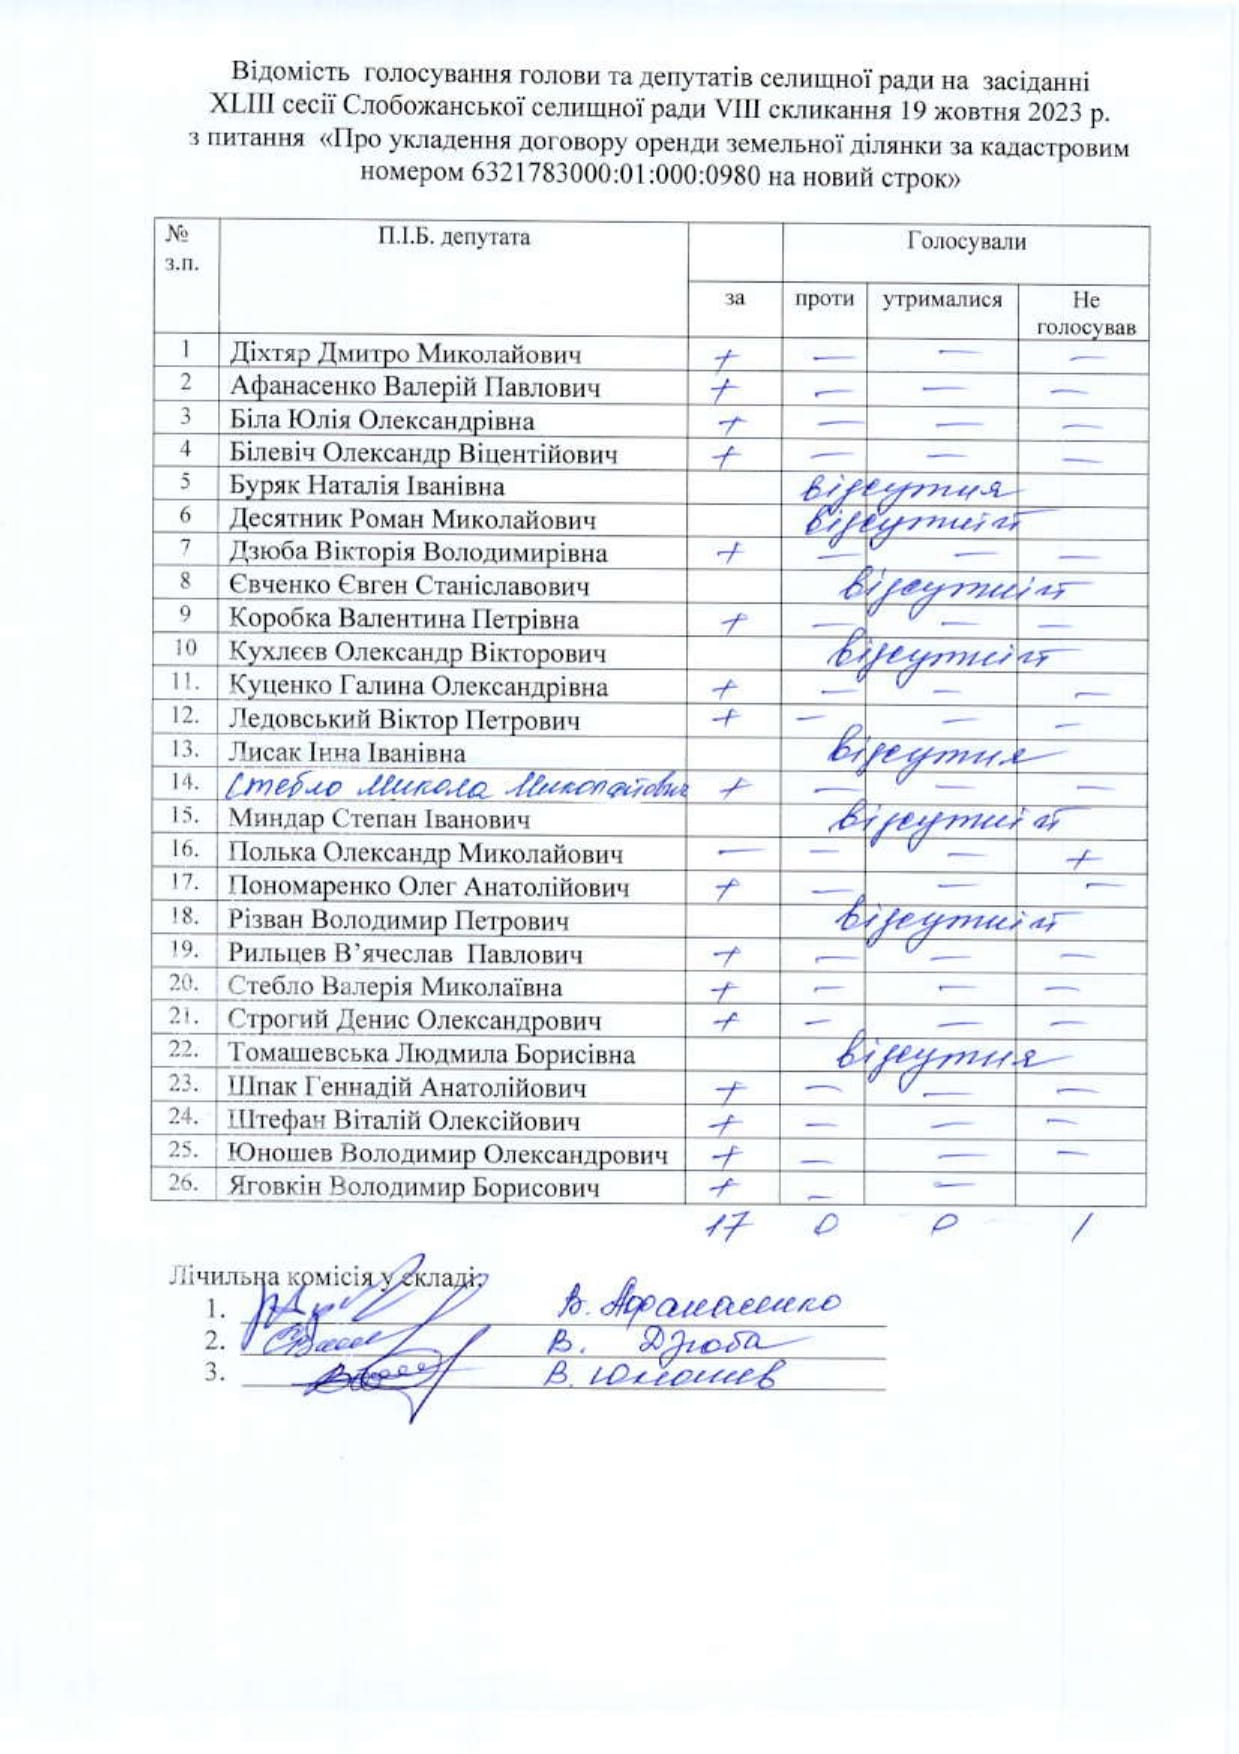 Відомість голосування голови та депутатів селищної ради на засіданні
XLIII сесії Слобожанської селищної ради VIII скликання 19 жовтня 2023 р.
з питання «Про укладення договору оренди земельної ділянки за кадастровим
номером 6321783000:01:000:0980 на новий строк»
№ з.п. П.І.Б. депутата Голосували
за проти утрималися Не голосував
1 Діхтяр Дмитро Миколайович + — — —
2 Афанасенко Валерій Павлович + — — —
3 Біла Юлія Олександрівна + — — —
4 Білевіч Олександр Віцентійович + — — —
5 Буряк Наталія Іванівна відсутня
6 Десятник Роман Миколайович відсутній
7 Дзюба Вікторія Володимирівна + — — —
8 Євченко Євген Станіславович відсутній
9 Коробка Валентина Петрівна + — — —
10 Кухлєєв Олександр Вікторович відсутній
11. Куценко Галина Олександрівна + — — —
12. Ледовський Віктор Петрович + — — —
13. Лисак Інна Іванівна відсутня
14. Стебло Микола Миколайович + — — —
15. Миндар Степан Іванович відсутній
16. Полька Олександр Миколайович — — — +
17. Пономаренко Олег Анатолійович + — — —
18. Різван Володимир Петрович відсутній
19. Рильцев В’ячеслав Павлович + — — —
20. Стебло Валерія Миколаївна + — — —
21. Строгий Денис Олександрович + — — —
22. Томашевська Людмила Борисівна відсутня
23. Шпак Геннадій Анатолійович + — — —
24. Штефан Віталій Олексійович + — — —
25. Юношев Володимир Олександрович + — — —
26. Яговкін Володимир Борисович + — —
17 0 0 1
Лічильна комісія у складі:
1. В. Афанасенко
2. В. Дзюба
3. В. Юношев